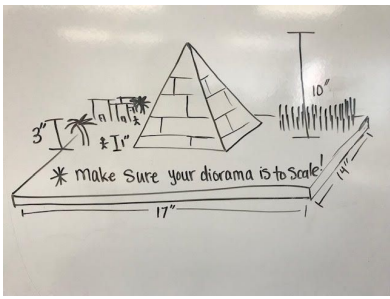 10"
3"
1"
* make sure your diorama is to scale!
14"
17"